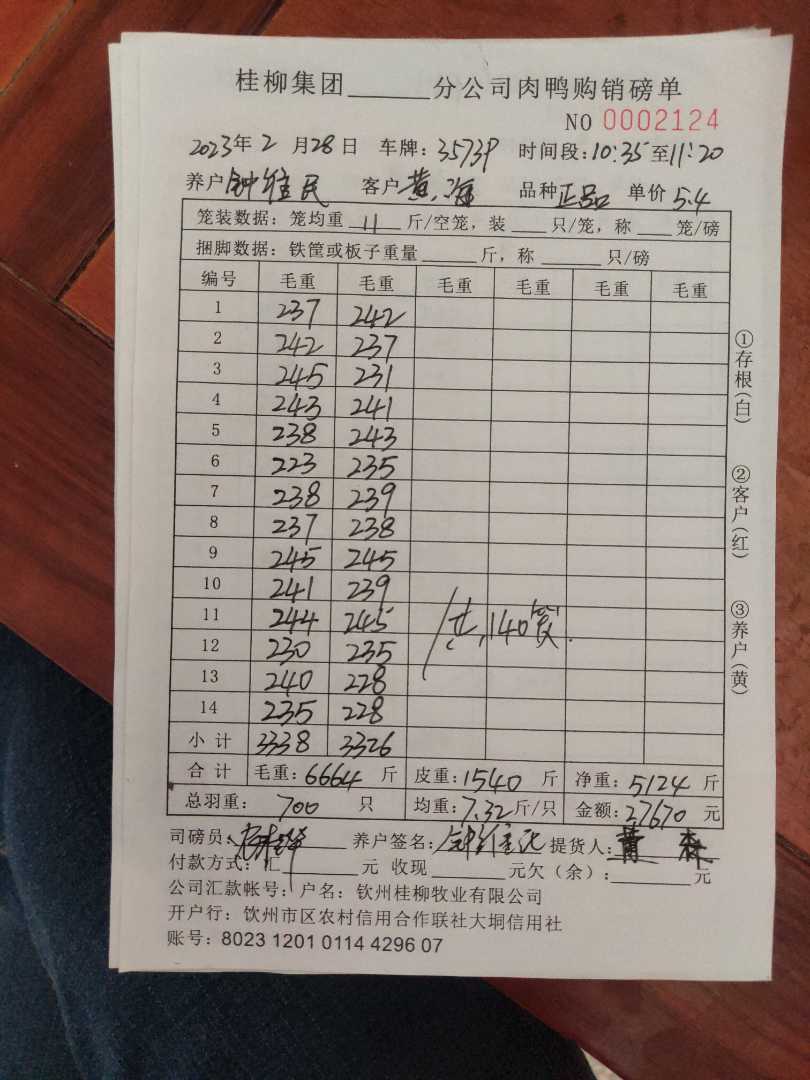 桂柳集团______分公司肉鸭购销磅单
NO 0002124
2023年2月28日 车牌:3573P 时间段:10:35至11:20
养户钟维民 客户黄海 品种正品 单价5.4
笼装数据:笼均重 11 斤/空笼,装___只/笼,称___笼/磅
捆脚数据:铁筐或板子重量______斤,称______只/磅
编号 毛重 毛重 毛重 毛重 毛重 毛重
1 237 242
2 242 237
3 245 231
4 243 241
5 238 243
6 223 235
7 238 239
8 237 238
9 245 245
10 241 239
11 244 245 共,140
12 230 235
13 240 228
14 235 228
小计 3338 3326
合计 毛重:6664斤 皮重:1540斤 净重:5124斤
总羽重:700只 均重:7.32斤/只 金额:27670元
司磅员: 养户签名:钟维民 提货人:黄森
付款方式:汇______元 收现______元欠(余):______元
公司汇款帐号:户名:钦州桂柳牧业有限公司
开户行:钦州市区农村信用合作联社大垌信用社
账号:8023 1201 0114 4296 07
①存根(白)
②客户(红)
③养户(黄)